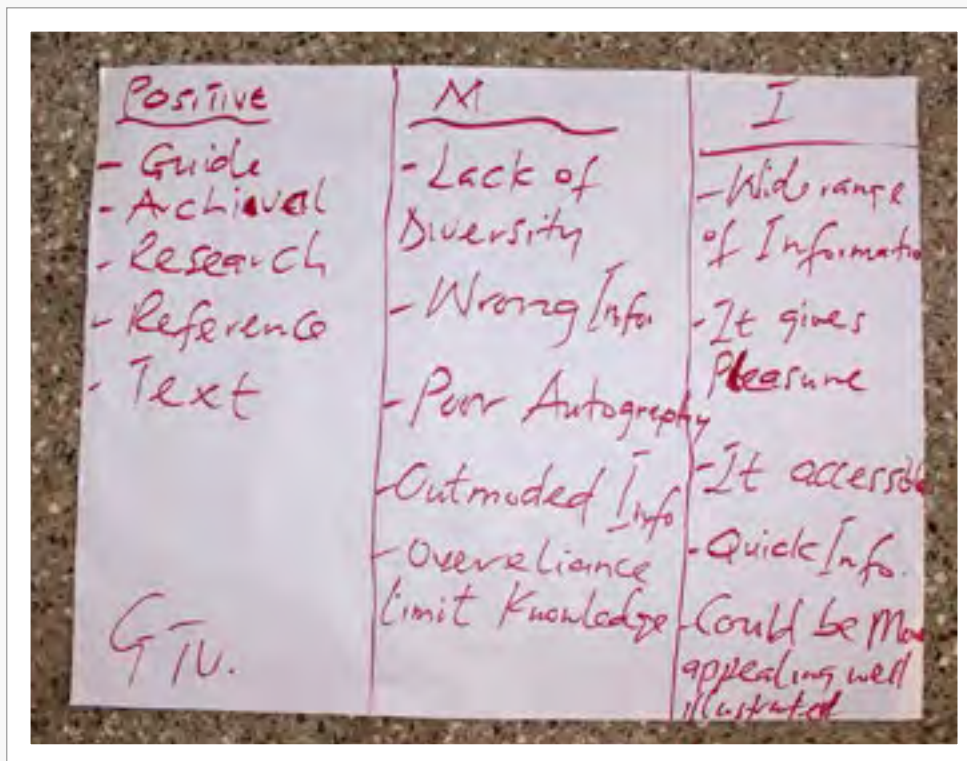 Positive
- Guide
- Archival
- Research
- Reference
- Text
G IV.
M
- Lack of
Diversity
- Wrong Info.
- Poor Autography
- Outmoded Info
- Overreliance
limit Knowledge
I
- Wide range
of Informatio
- It gives
Pleasure
- It accessible
- Quick Info.
- Could be Mo
appealing well
illustrated